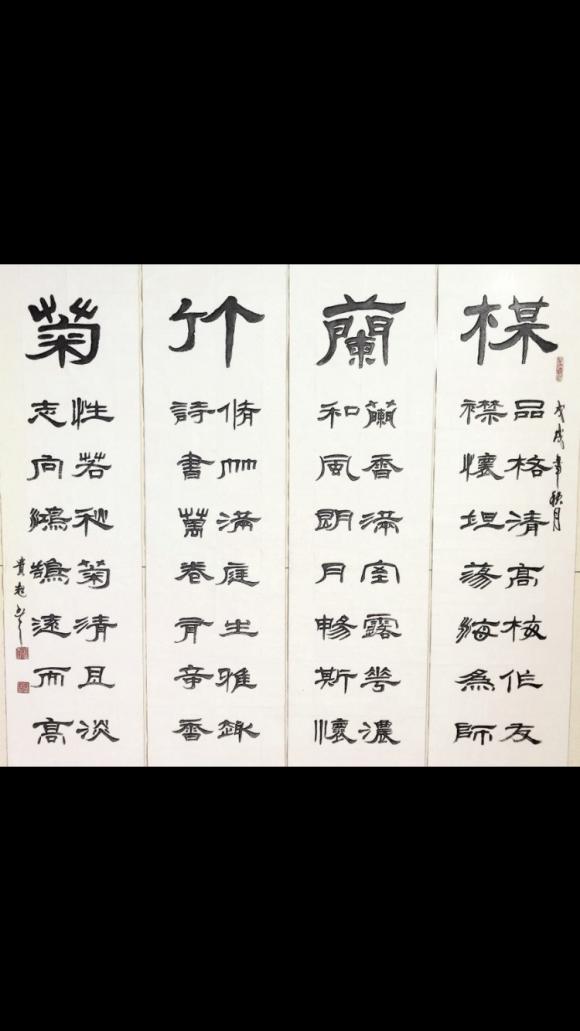 楳
戊戌年秋月
品格清高梅作友
襟懷坦蕩海為師
蘭
蘭香滿室露花濃
和風明月暢斯懷
竹
脩竹滿庭生雅趣
詩書萬卷有香
菊
性若秋菊清且淡
志向鴻鵠遠而高